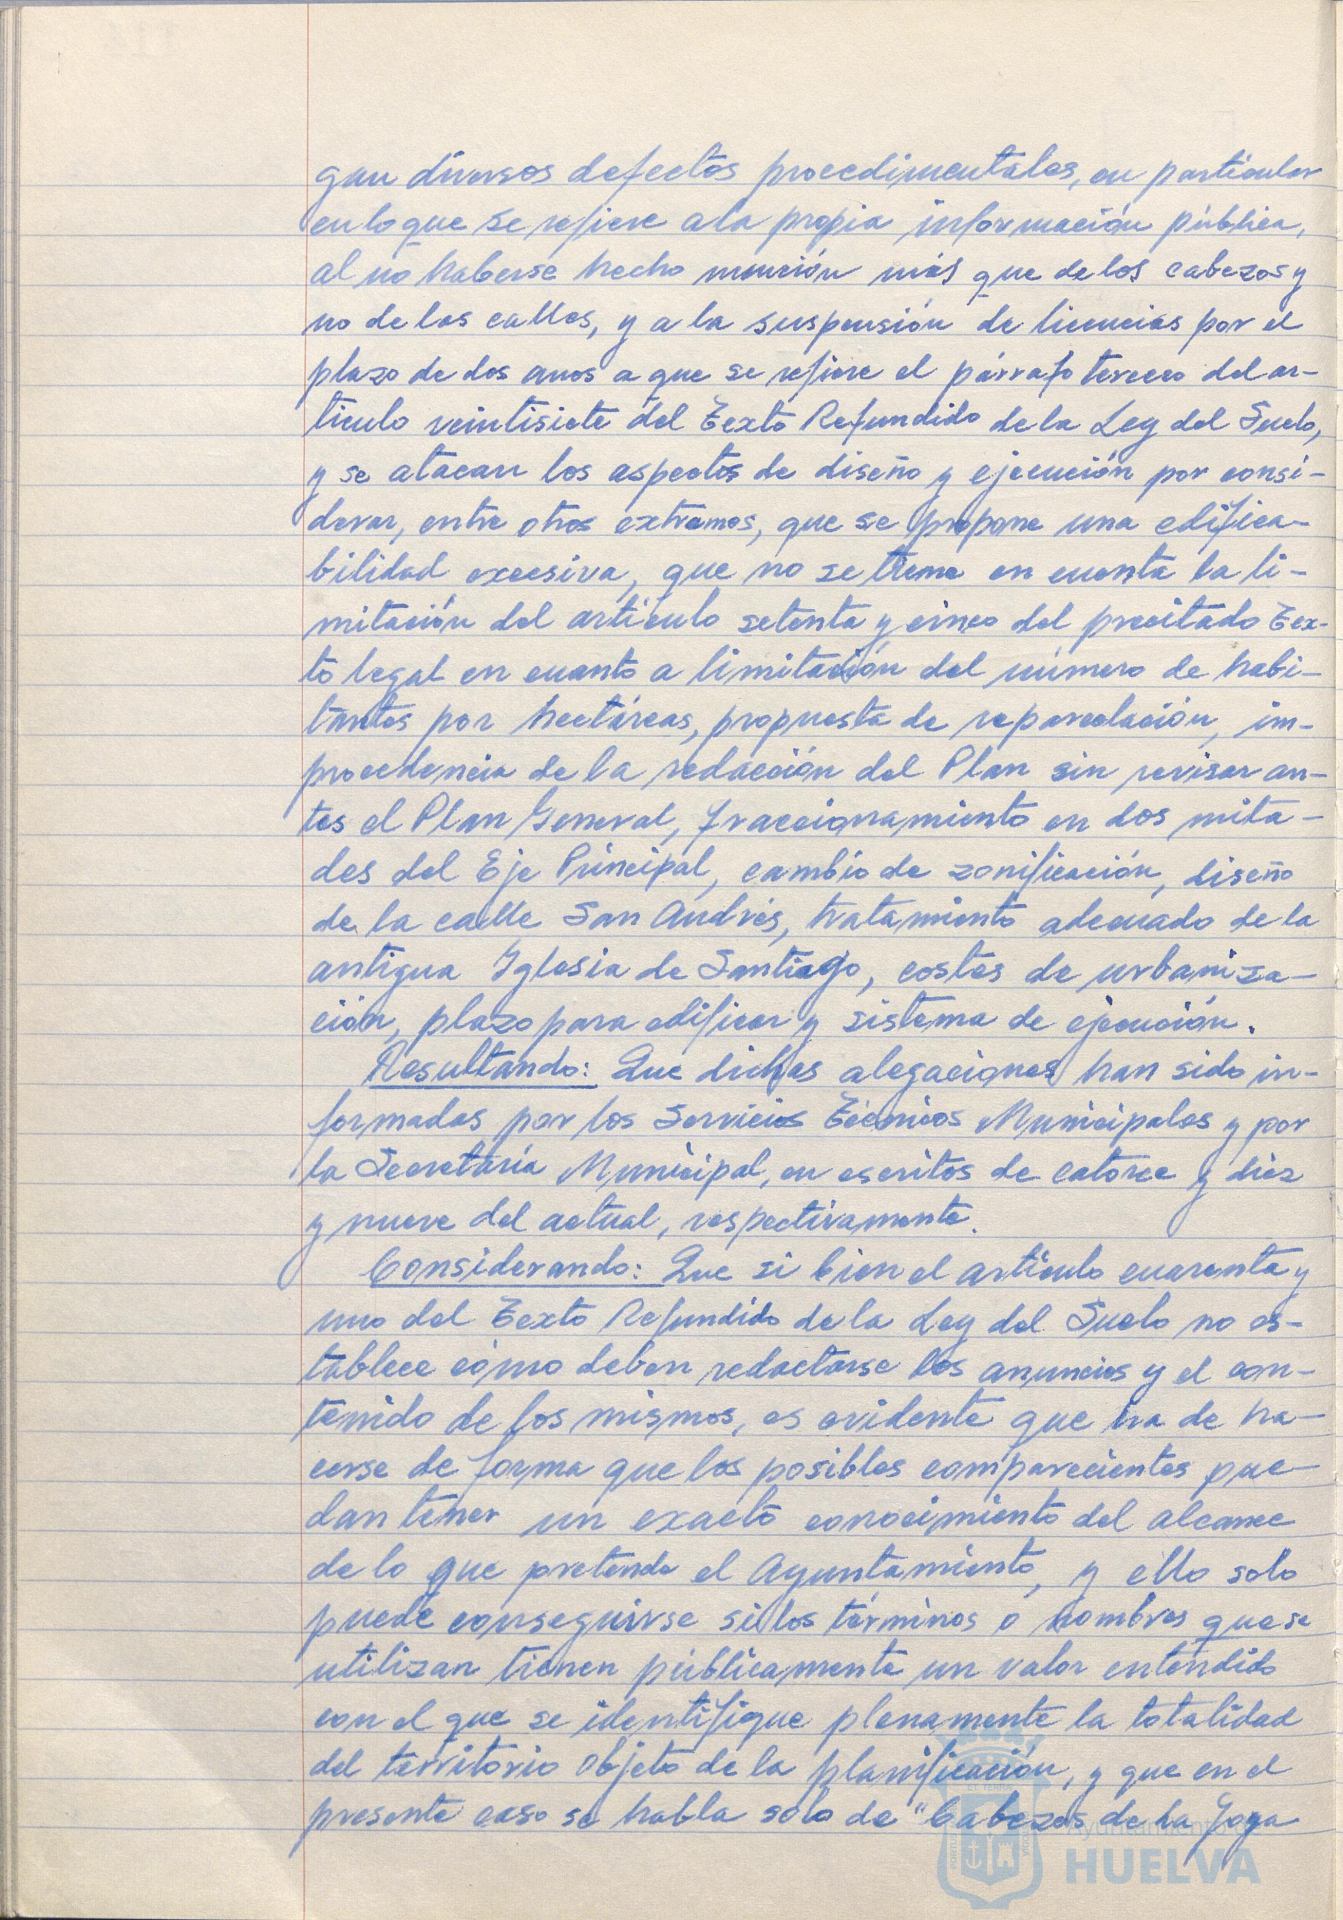 gan diversos defectos procedimentales, en particular
en lo que se refiere a la propia información pública,
al no haberse hecho mención más que de los cabezos y
no de las calles, y a la suspensión de licencias por el
plazo de dos anos a que se refiere el párrafo tercero del ar-
tículo veintisiete del Texto Refundido de la Ley del Suelo,
y se atacan los aspectos de diseño y ejecución por consi-
derar, entre otros extremos, que se propone una edifica-
bilidad excesiva, que no se tiene en cuenta la li-
mitación del artículo setenta y cinco del precitado Tex-
to legal en cuanto a limitación del número de habi-
tantes por hectáreas, propuesta de reparcelación, im-
procedencia de la redacción del Plan sin revisar an-
tes el Plan General, fraccionamiento en dos mita-
des del Eje Principal, cambio de zonificación, diseño
de la calle San Andrés, tratamiento adecuado de la
antigua Iglesia de Santiago, costes de urbaniza-
ción, plazo para edificar y sistema de ejecución.
Resultando: Que dichas alegaciones han sido in-
formadas por los Servicios Técnicos Municipales y por
la Secretaría Municipal, en escritos de catorce y diez
y nueve del actual, respectivamente.
Considerando: Que si bien el artículo cuarenta y
uno del Texto Refundido de la Ley del Suelo no es-
tablece cómo deben redactarse los anuncios y el con-
tenido de los mismos, es evidente que ha de ha-
cerse de forma que los posibles comparecientes pue-
dan tener un exacto conocimiento del alcance
de lo que pretende el Ayuntamiento, y ello solo
puede conseguirse si los términos o nombres que se
utilizan tienen públicamente un valor entendido
con el que se identifique plenamente la totalidad
del territorio objeto de la planificación, y que en el
presente caso se habla solo de "Cabezos de la Joya
Ayuntamiento de
HUELVA